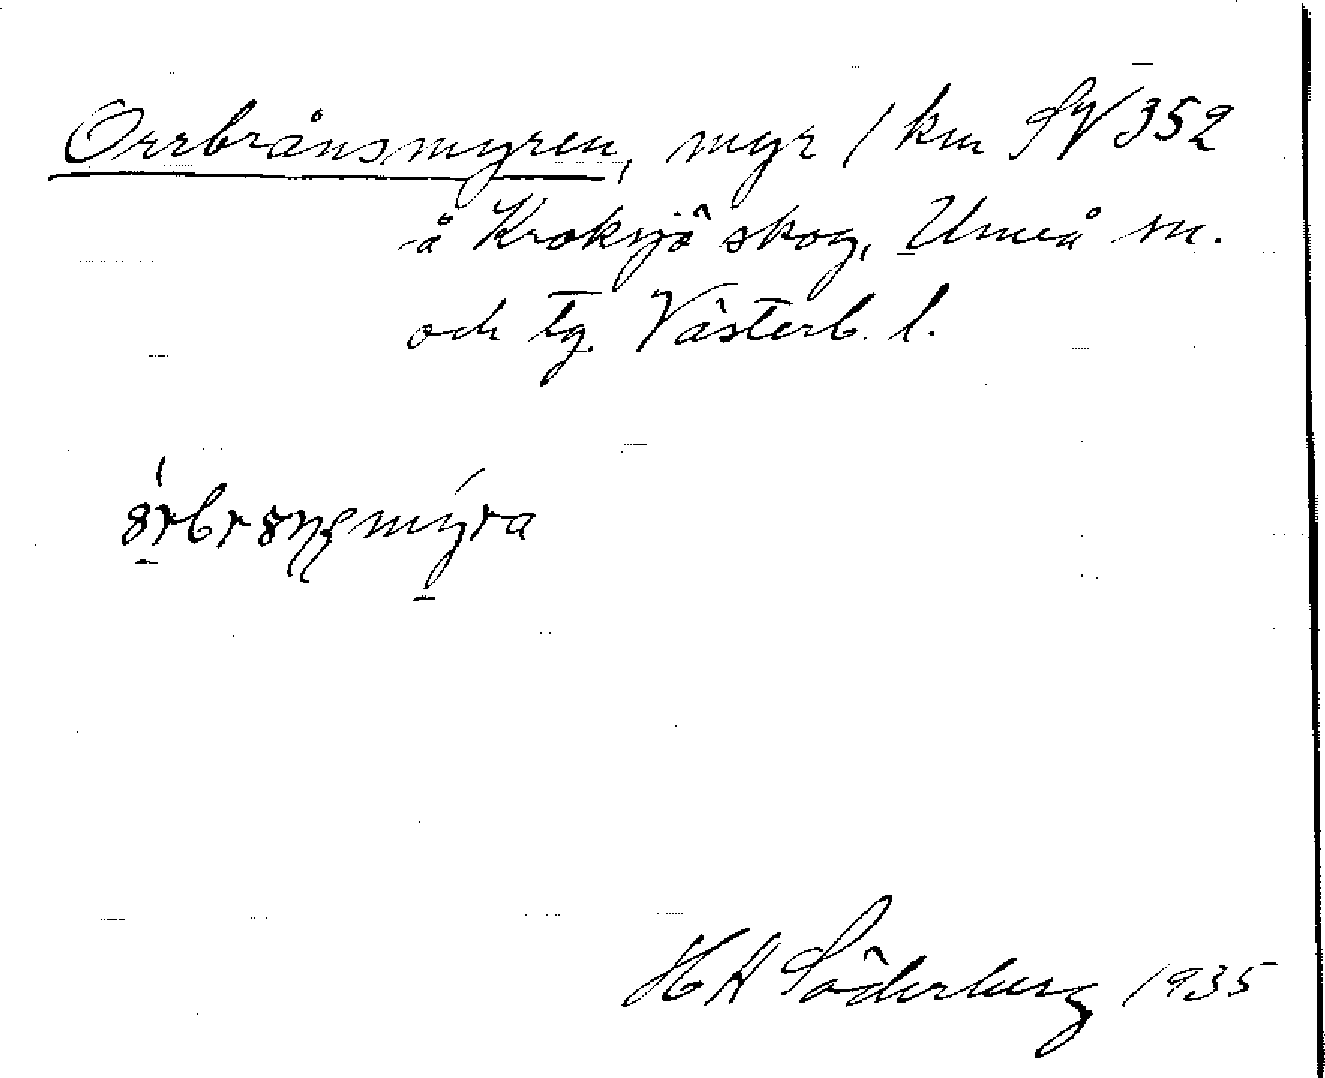 Orrbrånsmyren, myr 1 km SV 352
å Kroksjö skog, Umeå sn.
och tg. Västerb. l.
H A Söderberg 1935